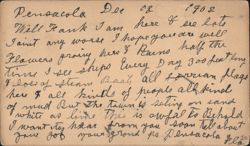 Pensacola Dec 02 1902
Will Frank I am here & see lots
I aint any worse I hope you are well
Flowers prairy here & Burns half the
time I see ships Every Day 300 feet long
& lots of Steam Boats all foreign flags
here & all kinds of people all kind
of mud But the town is seting on sand
white as lime this is awful to Behold
I want to hear from you soon tell about
your Job your friend as Pensacola Fla